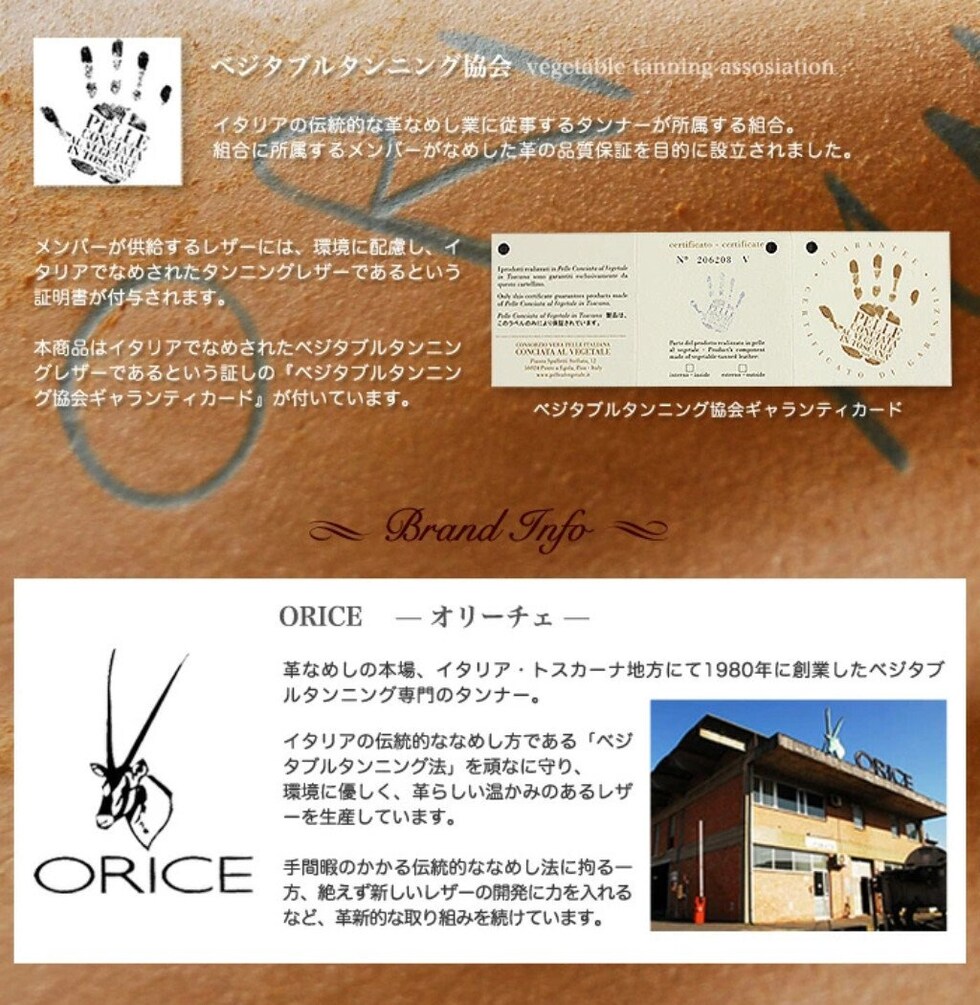 PELLE
CONCIATA
AL VEGETALE
IN TOSCANA
ベジタブルタンニング協会 vegetable tanning assosiation
イタリアの伝統的な革なめし業に従事するタンナーが所属する組合。
組合に所属するメンバーがなめした革の品質保証を目的に設立されました。
メンバーが供給するレザーには、環境に配慮し、イ
タリアでなめされたタンニングレザーであるという
証明書が付与されます。
本商品はイタリアでなめされたベジタブルタンニン
グレザーであるという証しの『ベジタブルタンニン
グ協会ギャランティカード』が付いています。
I prodotti realizzati in Pelle Conciata al Vegetale
in Toscana sono garantiti esclusivamente da
questo cartellino.
Only this certificate guarantees products made
of Pelle Conciata al Vegetale in Toscana.
Pelle Conciata al Vegetale in Toscana 製品は、
このラベルのみにより保証されています。
CONSORZIO VERA PELLE ITALIANA
CONCIATA AL VEGETALE
Piazza Spalletti Stellata, 12
56024 Ponte a Egola, Pisa - Italy
www.pellealvegetale.it
certificato - certificate
N° 206208 V
Parte del prodotto realizzata in pelle
al vegetale - Product's component
made of vegetable-tanned leather.
interno - inside
esterno - outside
GUARANTEE
CERTIFICATO DI GARANZIA
PELLE
CONCIATA
AL VEGETALE
IN TOSCANA
ベジタブルタンニング協会ギャランティカード
Brand Info
ORICE ― オリーチェ ―
革なめしの本場、イタリア・トスカーナ地方にて1980年に創業したベジタブ
ルタンニング専門のタンナー。
イタリアの伝統的ななめし方である「ベジ
タブルタンニング法」を頑なに守り、
環境に優しく、革らしい温かみのあるレザ
ーを生産しています。
手間暇のかかる伝統的ななめし法に拘る一
方、絶えず新しいレザーの開発に力を入れる
など、革新的な取り組みを続けています。
ORICE
ORICE